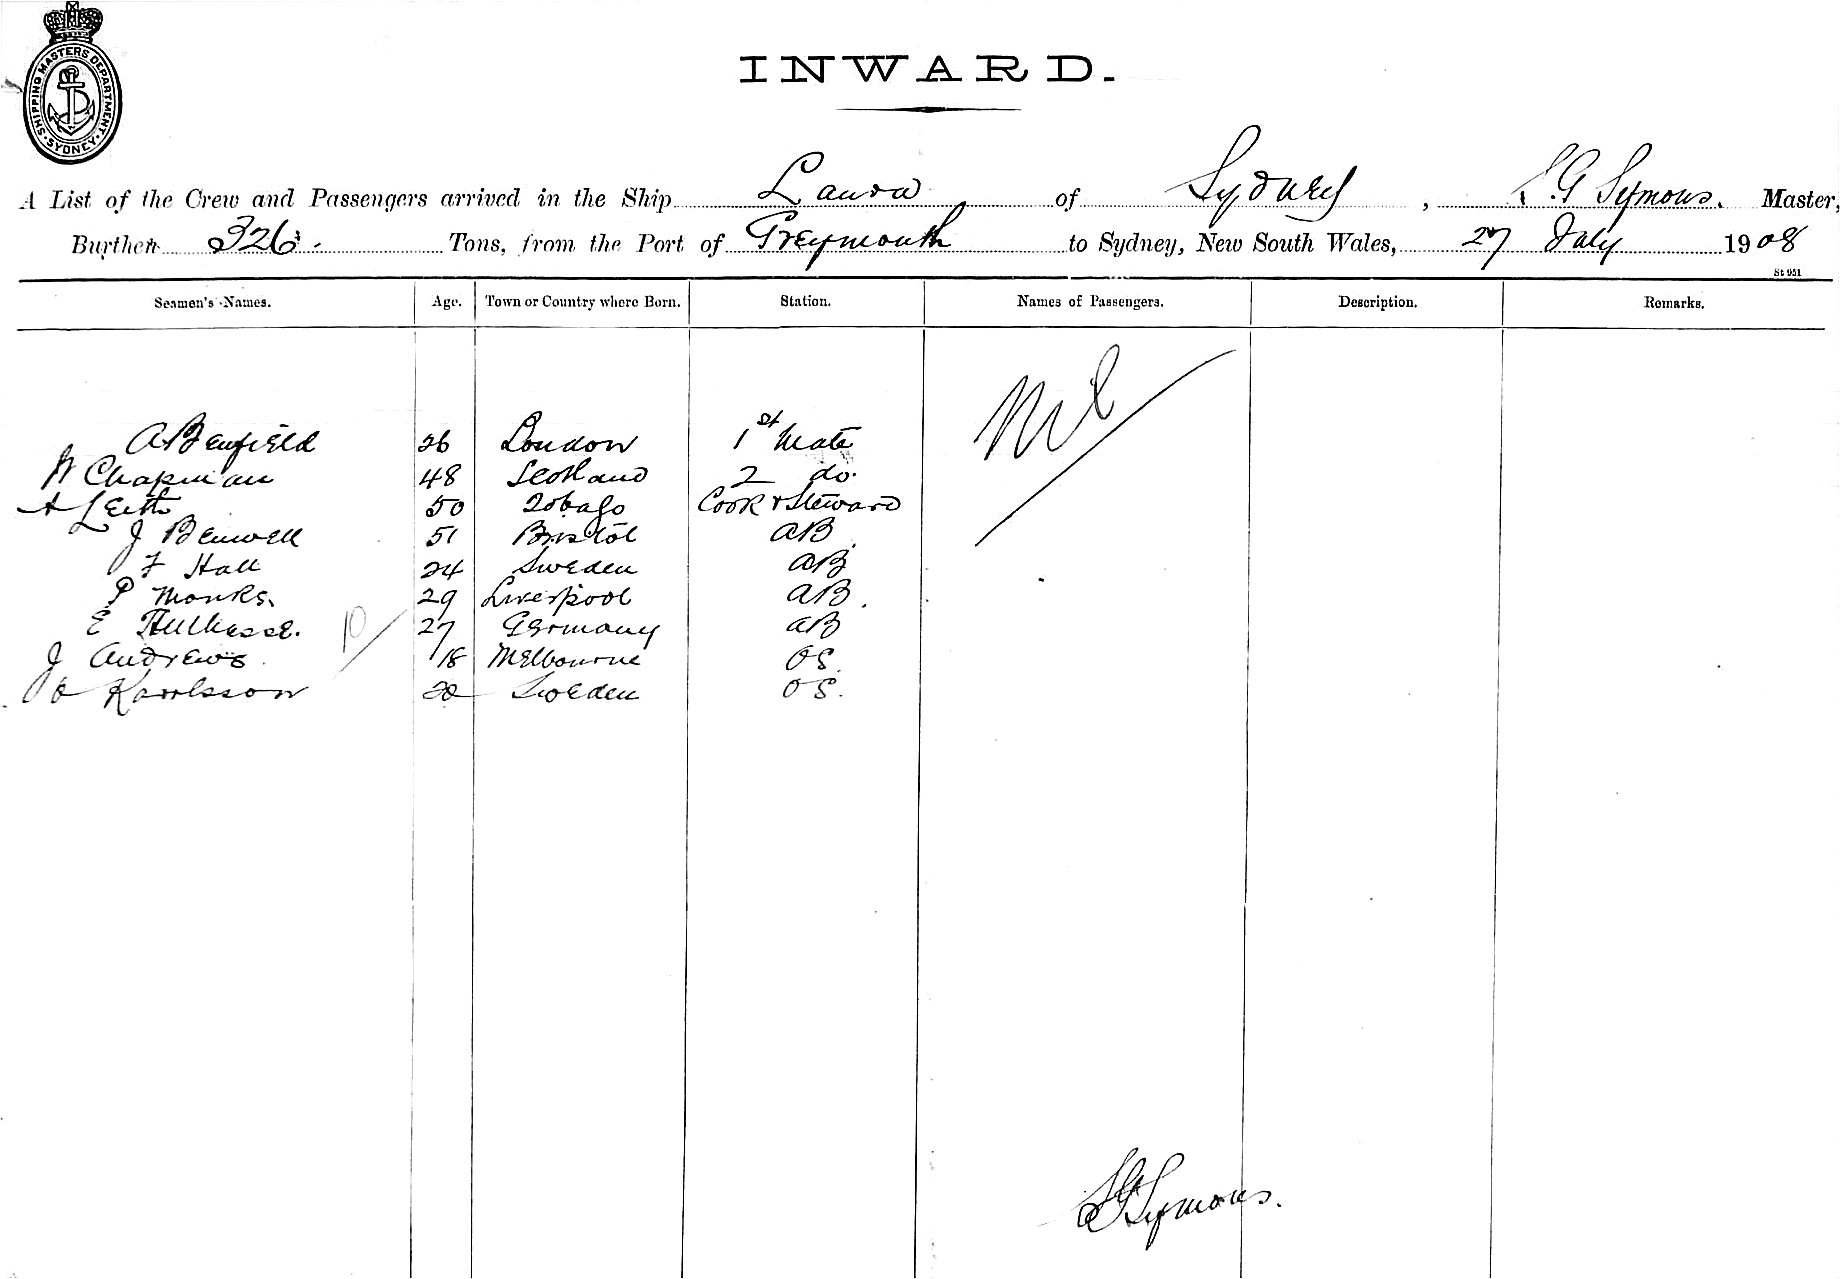 SHIPPING MASTERS DEPARTMENT. SYDNEY.
INWARD.
A List of the Crew and Passengers arrived in the Ship Laura of Sydney, S.G Symons. Master,
Burthen 326. Tons, from the Port of Greymouth to Sydney, New South Wales, 27 July 1908
St 951
Seamen's Names. Age. Town or Country where Born. Station. Names of Passengers. Description. Remarks.
Nil
A Benfield 26 London 1st Mate
W Chapman 48 Scotland 2 do.
A Leith 50 Tobago Cook & Steward
J Benwell 51 Bristol AB
F Hall 24 Sweden AB
P Monks. 29 Liverpool AB.
E 27 Germany AB
10
J Andrews 18 Melbourne OS.
Karlsson 20 Sweden OS.
SGSymons.